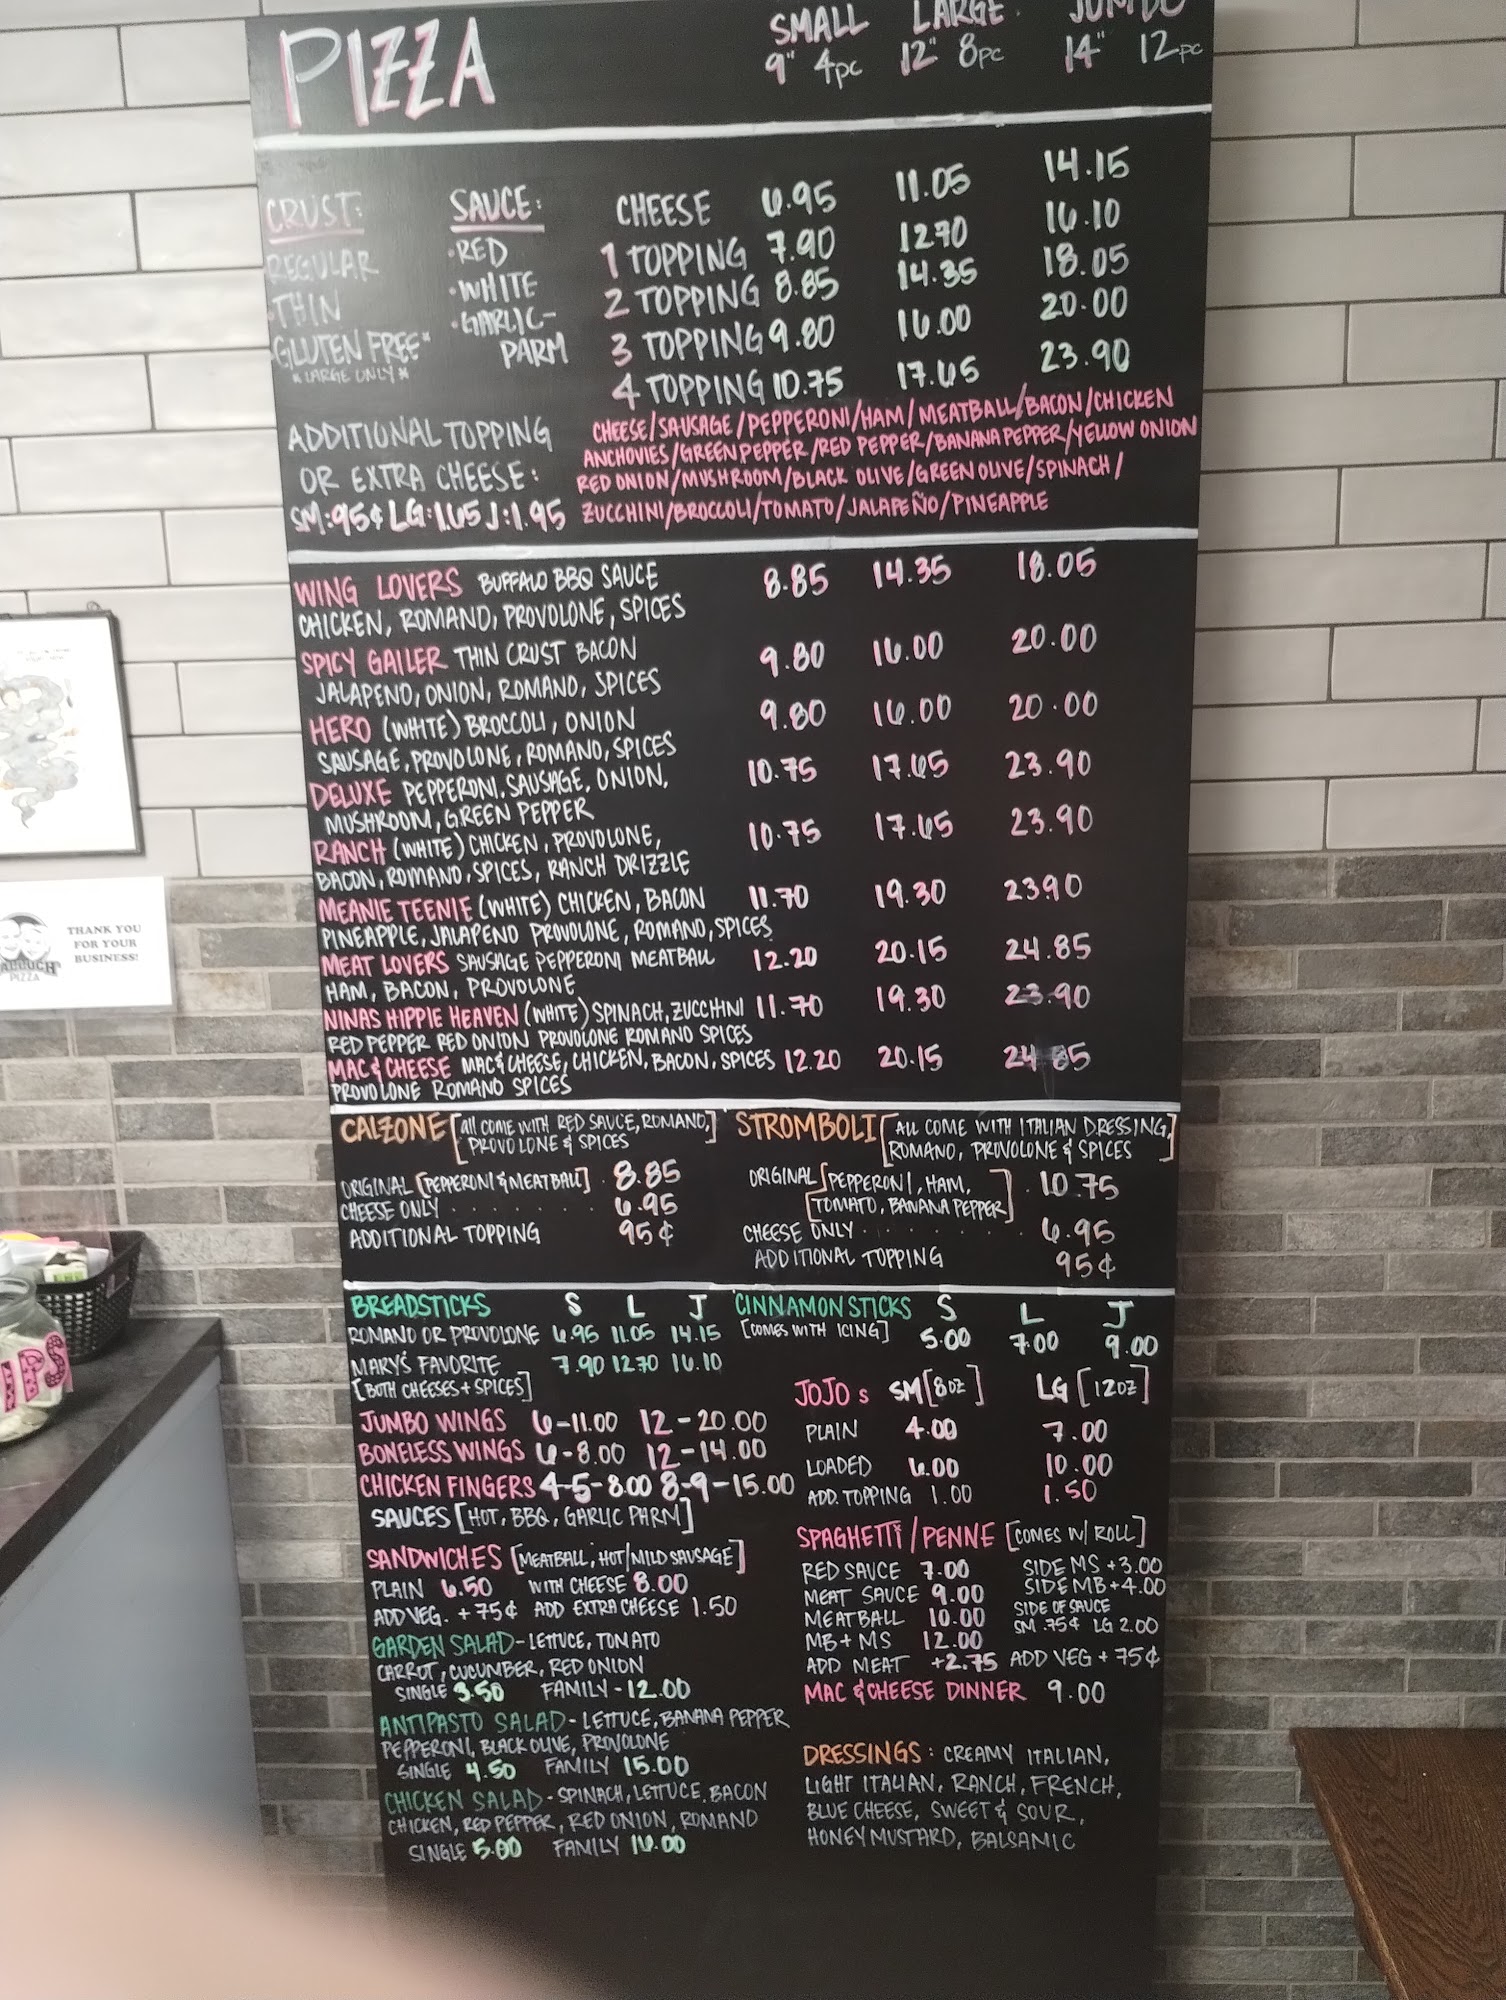 PIZZA
SMALL LARGE JUMBO
9" 4pc 12" 8pc 14" 12pc
CRUST:
REGULAR
THIN
GLUTEN FREE*
* LARGE ONLY *
SAUCE:
•RED
•WHITE
•GARLIC-
PARM
CHEESE 6.95 11.05 14.15
1 TOPPING 7.90 1270 16.10
2 TOPPING 8.85 14.35 18.05
3 TOPPING 9.80 16.00 20.00
4 TOPPING 10.75 17.65 23.90
ADDITIONAL TOPPING
OR EXTRA CHEESE:
SM:95¢ LG:1.65 J:1.95
CHEESE/SAUSAGE/PEPPERONI/HAM/MEATBALL/BACON/CHICKEN
ANCHOVIES/GREEN PEPPER/RED PEPPER/BANANA PEPPER/YELLOW ONION
RED ONION/MUSHROOM/BLACK OLIVE/GREEN OLIVE/SPINACH/
ZUCCHINI/BROCCOLI/TOMATO/JALAPEÑO/PINEAPPLE
WING LOVERS BUFFALO BBQ SAUCE 8.85 14.35 18.05
CHICKEN, ROMANO, PROVOLONE, SPICES
SPICY GAILER THIN CRUST BACON 9.80 16.00 20.00
JALAPENO, ONION, ROMANO, SPICES
HERO (WHITE) BROCCOLI, ONION 9.80 16.00 20.00
SAUSAGE, PROVOLONE, ROMANO, SPICES
DELUXE PEPPERONI, SAUSAGE, ONION, 10.75 17.65 23.90
MUSHROOM, GREEN PEPPER
RANCH (WHITE) CHICKEN, PROVOLONE, 10.75 17.65 23.90
BACON, ROMANO, SPICES, RANCH DRIZZLE
MEANIE TEENIE (WHITE) CHICKEN, BACON 11.70 19.30 23.90
PINEAPPLE, JALAPENO PROVOLONE, ROMANO, SPICES
MEAT LOVERS SAUSAGE PEPPERONI MEATBALL 12.20 20.15 24.85
HAM, BACON, PROVOLONE
NINAS HIPPIE HEAVEN (WHITE) SPINACH, ZUCCHINI 11.70 19.30 23.90
RED PEPPER RED ONION PROVOLONE ROMANO SPICES
MAC & CHEESE MAC & CHEESE, CHICKEN, BACON, SPICES 12.20 20.15 24.85
PROVOLONE ROMANO SPICES
CALZONE [All COME WITH RED SAUCE, ROMANO,
PROVOLONE & SPICES]
ORIGINAL [PEPPERONI & MEATBALL] . 8.85
CHEESE ONLY . . . . . . . 6.95
ADDITIONAL TOPPING 95¢
STROMBOLI [All COME WITH ITALIAN DRESSING,
ROMANO, PROVOLONE & SPICES]
ORIGINAL [PEPPERONI, HAM,
TOMATO, BANANA PEPPER] . 10.75
CHEESE ONLY . . . . . . . . 6.95
ADDITIONAL TOPPING 95¢
BREADSTICKS S L J
ROMANO OR PROVOLONE 6.95 11.05 14.15
MARY'S FAVORITE 7.90 12.70 16.10
[BOTH CHEESES + SPICES]
JUMBO WINGS 6-11.00 12-20.00
BONELESS WINGS 6-8.00 12-14.00
CHICKEN FINGERS 4-5-8.00 8-9-15.00
SAUCES [HOT, BBQ, GARLIC PARM]
SANDWICHES [MEATBALL, HOT/MILD SAUSAGE]
PLAIN 6.50 WITH CHEESE 8.00
ADD VEG. +75¢ ADD EXTRA CHEESE 1.50
GARDEN SALAD - LETTUCE, TOMATO
CARROT, CUCUMBER, RED ONION
SINGLE 3.50 FAMILY - 12.00
ANTIPASTO SALAD - LETTUCE, BANANA PEPPER
PEPPERONI, BLACK OLIVE, PROVOLONE
SINGLE 4.50 FAMILY 15.00
CHICKEN SALAD - SPINACH, LETTUCE, BACON
CHICKEN, RED PEPPER, RED ONION, ROMANO
SINGLE 5.00 FAMILY 16.00
CINNAMON STICKS S L J
[COMES WITH ICING] 5.00 7.00 9.00
JOJO s SM [8oz] LG [12oz]
PLAIN 4.00 7.00
LOADED 6.00 10.00
ADD. TOPPING 1.00 1.50
SPAGHETTI/PENNE [COMES W/ ROLL]
RED SAUCE 7.00 SIDE MS +3.00
MEAT SAUCE 9.00 SIDE MB +4.00
MEATBALL 10.00 SIDE OF SAUCE
MB + MS 12.00 SM .75¢ LG 2.00
ADD MEAT +2.75 ADD VEG +75¢
MAC & CHEESE DINNER 9.00
DRESSINGS: CREAMY ITALIAN,
LIGHT ITALIAN, RANCH, FRENCH,
BLUE CHEESE, SWEET & SOUR,
HONEY MUSTARD, BALSAMIC
THANK YOU
FOR YOUR
BUSINESS!
PIZZA